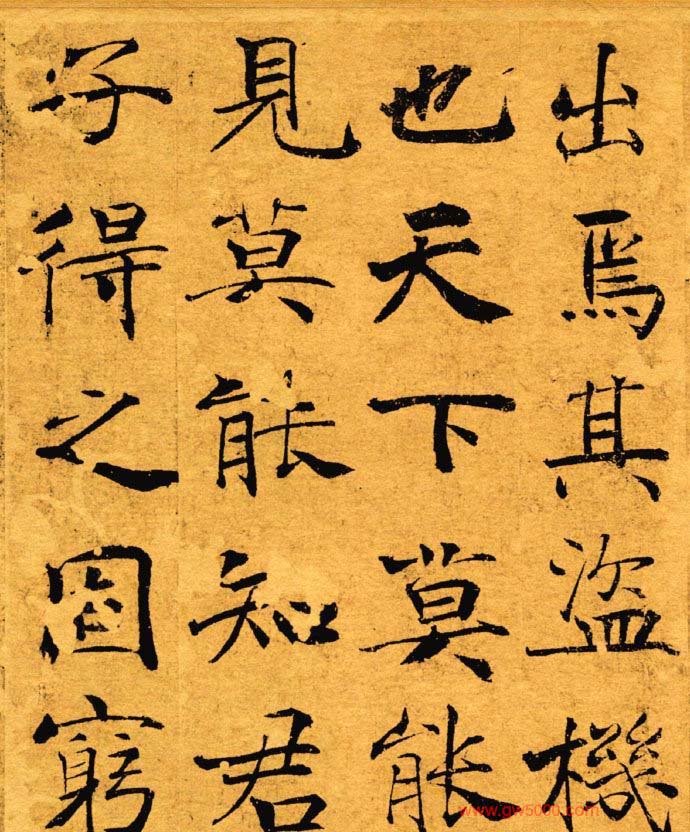 出焉其盜機
也天下莫能
見莫能知君
子得之固窮
www.gw5000.com